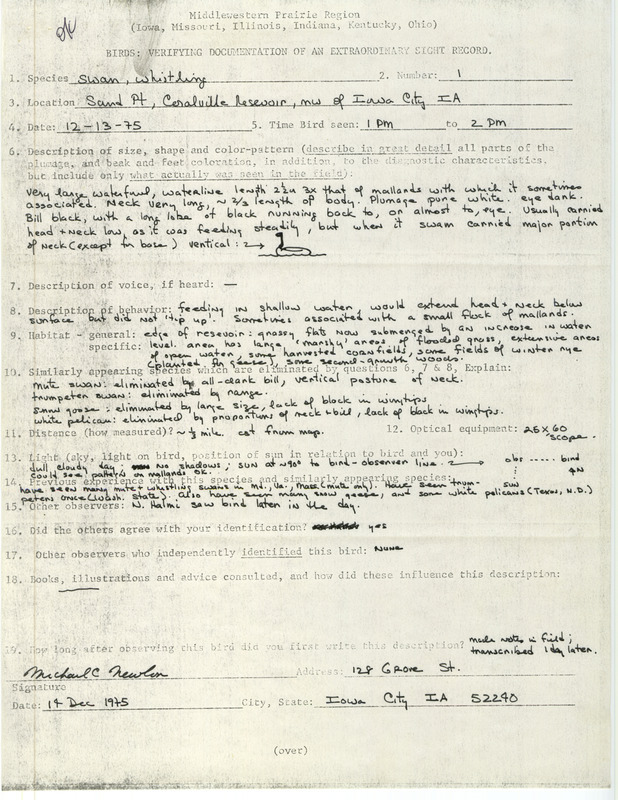 OK
Middlewestern Prairie Region
(Iowa, Missouri, Illinois, Indiana, Kentucky, Ohio)
BIRDS: VERIFYING DOCUMENTATION OF AN EXTRAORDINARY SIGHT RECORD.
1. Species Swan, whistling 2. Number: 1
3. Location Sand Pt, Coralville Resevoir, nw of Iowa City IA
4. Date: 12-13-75 5. Time Bird seen: 1 PM to 2 PM
6. Description of size, shape and color-pattern (describe in great detail all parts of the
plumage, and beak and feet coloration, in addition, to the diagnostic characteristics,
but include only what actually was seen in the field):
Very large waterfowl, waterline length 2½ 3x that of mallards with which it sometimes
associated. Neck very long, ~ 2/3 length of body. Plumage pure white. eye dark.
Bill black, with a long lobe of black running back to, or almost to, eye. Usually carried
head + neck low, as it was feeding steadily, but when it swam carried major portion
of neck (except for base) vertical:
7. Description of voice, if heard: —
8. Description of behavior: feeding in shallow water, would extend head + neck below
surface but did not "tip up". Sometimes associated with a small flock of mallards.
9. Habitat - general: edge of resevoir: grassy flats now submerged by an increase in water
specific: level. area has large 'marshy' areas of flooded grass, extensive areas
of open water, some harvested cornfields, some fields of winter rye
(planted for geese), some second-growth woods.
10. Similarly appearing species which are eliminated by questions 6, 7 & 8, Explain:
mute swan: eliminated by all-dark bill, vertical posture of neck.
trumpeter swan: eliminated by range.
snow goose: eliminated by large size, lack of black in wingtips
white pelican: eliminated by proportions of neck + bill, lack of black in wingtips.
11. Distance (how measured)? ~ ⅓ mile. est from map. 12. Optical equipment: 25X60
scope.
13. Light (sky, light on bird, position of sun in relation to bird and you):
dull cloudy day; no shadows; sun at ~90° to bird-observer line. obs ..... bird
could see pattern on mallards OK. sun
14. Previous experience with this species and similarly appearing species:
have seen many mute + whistling swans in Md, Va., Mass (mute only). Have seen trum-
peters once (Wash. State). Also have seen many snow geese, and some white pelicans (Texas, N.D.)
15. Other observers: N. Halmi saw bird later in the day.
16. Did the others agree with your identification? yes
17. Other observers who independently identified this bird: None
18. Books, illustrations and advice consulted, and how did these influence this description:
19. How long after observing this bird did you first write this description? made notes in field;
transcribed 1 day later.
Michael C Newlon Address: 128 Grove St.
Signature
Date: 14 Dec 1975 City, State: Iowa City IA 52240
(over)